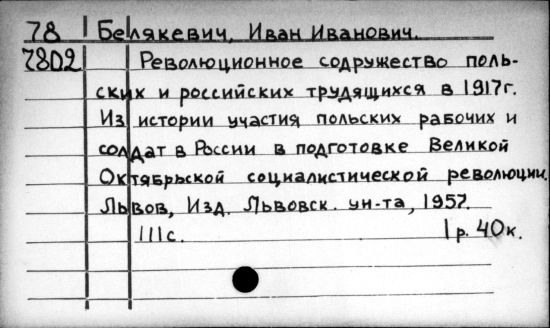 78 Белякевич, Иван Иванович.
7802 Революционное содружество поль-
ских и российских трудящихся в 1917г.
Из истории участия польских рабочих и
солдат в России в подготовке Великой
Октябрьской социалистической революции.
Львов, Изд. Львовск. ун-та, 1957.
111с. 1р. 40к.